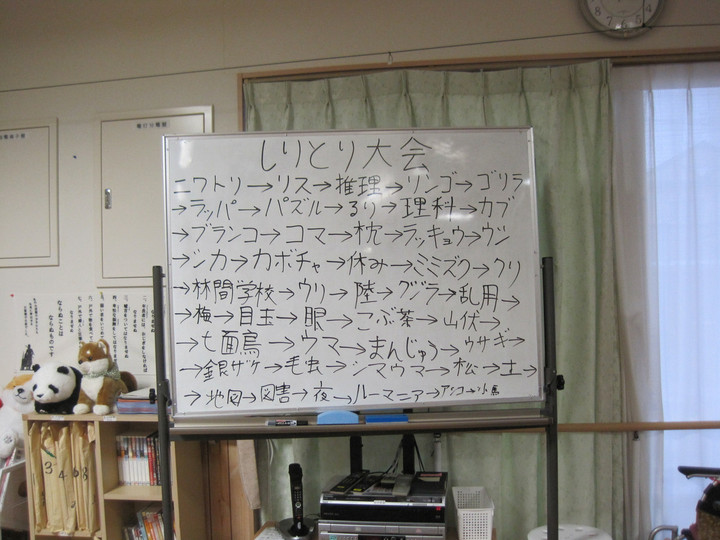 しりとり大会
ニワトリ→リス→推理→リンゴ→ゴリラ
→ラッパ→パズル→るり→理科→カブ
→ブランコ→コマ→枕→ラッキョウ→ウシ
→シカ→カボチャ→休み→ミミズク→クリ
→林間学校→ウリ→陸→グジラ→乱用→
→梅→目玉→眼→こぶ茶→山伏→
→七面鳥→ウマ→まんじゅう→ウサギ→
→銀ザケ→毛虫→シマウマ→松→土→
→地図→図書→夜→ルーマニア→アンコ→小鳥
ならぬことは
ならぬものです